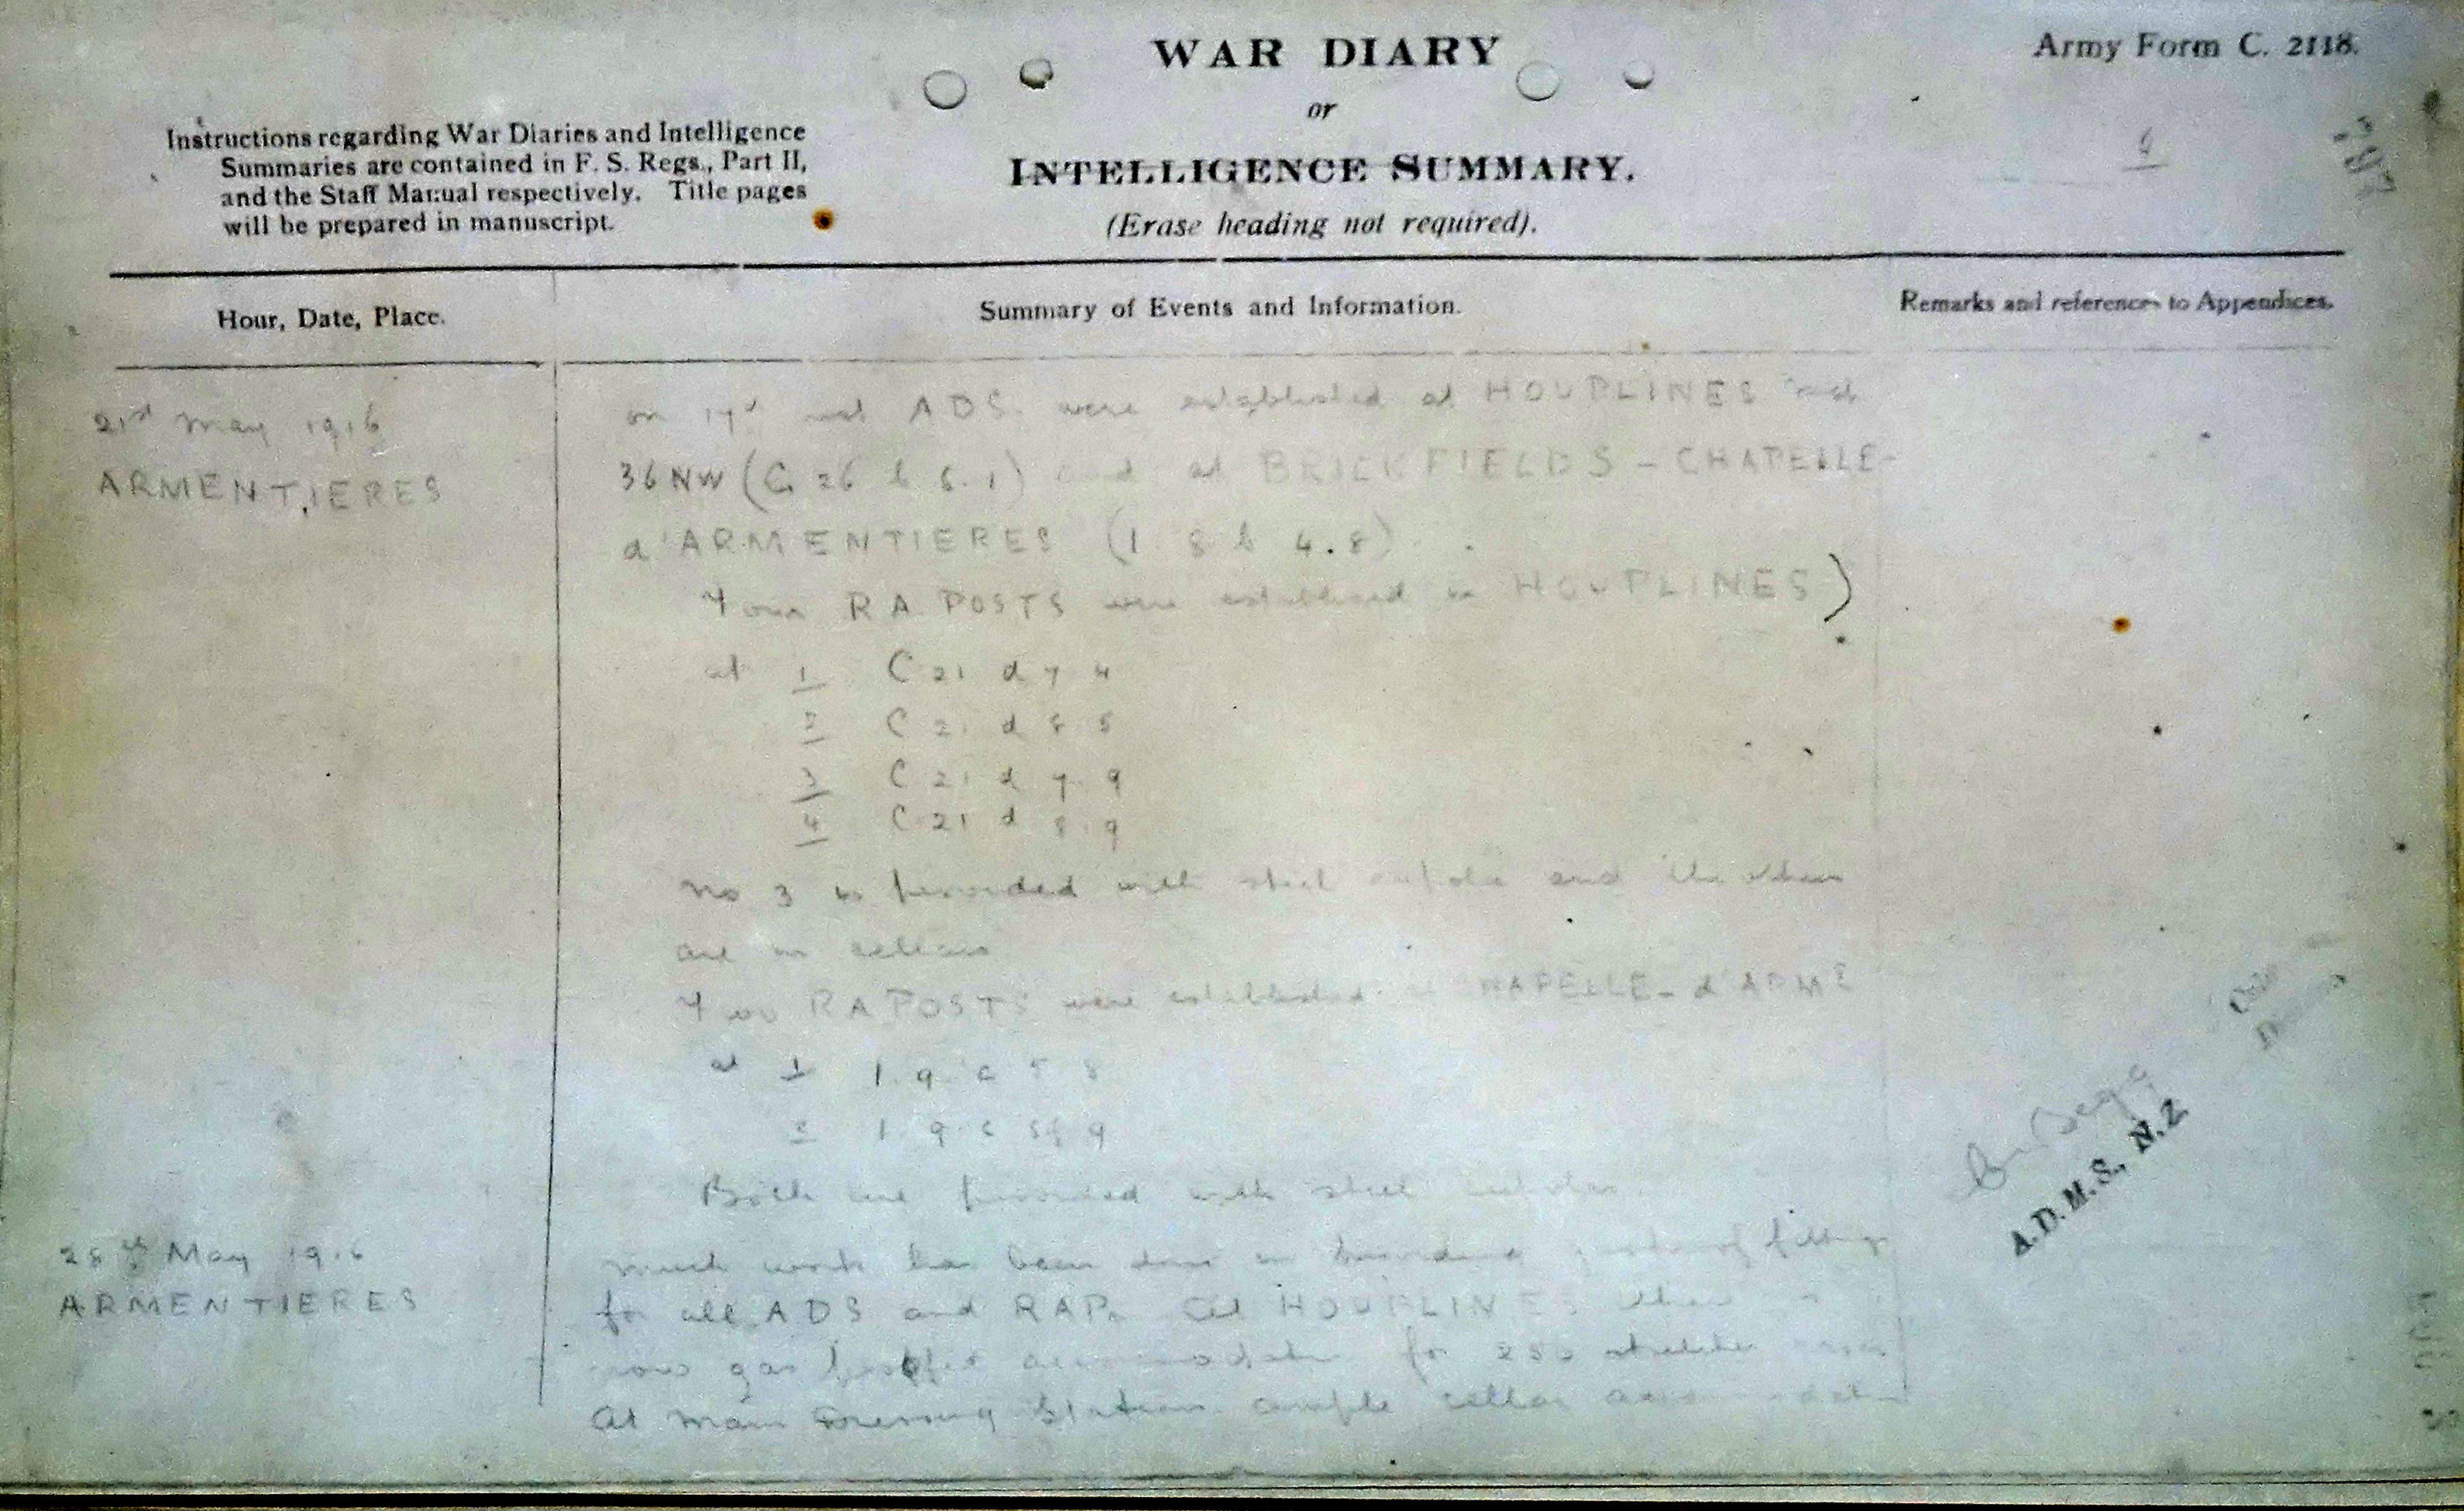 WAR DIARY
or
INTELLIGENCE SUMMARY.
(Erase heading not required).
Army Form C. 2118.
Instructions regarding War Diaries and Intelligence
Summaries are contained in F. S. Regs., Part II,
and the Staff Manual respectively. Title pages
will be prepared in manuscript.
Hour, Date, Place.
Summary of Events and Information.
Remarks and references to Appendices.
21st May 1916
ARMENTIERES
on ADS. were established at HOUPLINES
36 NW (C 26 b 6.1) and at BRICKFIELDS - CHAPELLE-
d'ARMENTIERES (I 8 b 4.8).
Four RA POSTS were established in HOUPLINES)
at 1 C 21 d 7 4
2 C 21 d 8 5
3 C 21 d 7 9
4 C 21 d 8.9
No 3 is provided with steel cupola and the others
are in cellars
Two RA POSTS were established CHAPELLE-d'ARM
at 1 I 9 c 5 8
2 I 9 c 9
Both are provided with steel cupolas.
A.D.M.S., N.Z
28th May 1916
ARMENTIERES
Much work has been done in providing fittings
for all ADS and RAPs. At HOUPLINES there
now gas accommodation for stretcher
At Main Dressing Station ample cellar accommodation